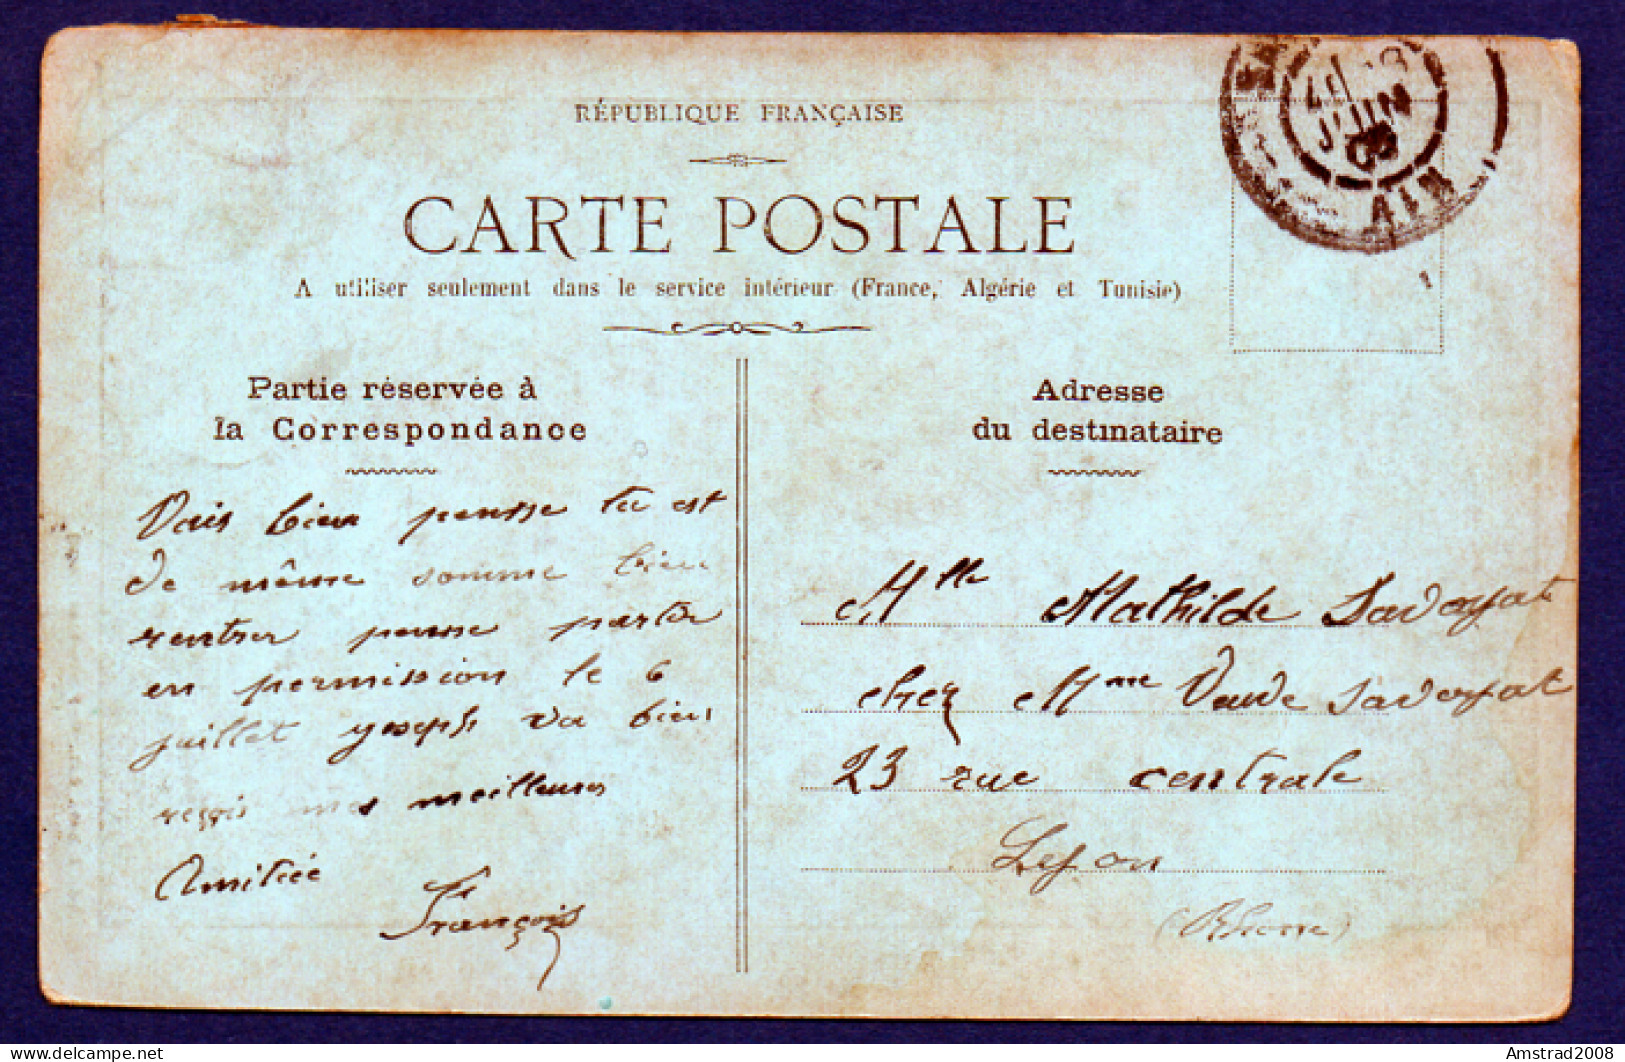 RÉPUBLIQUE FRANÇAISE
CARTE POSTALE
A utiliser seulement dans le service intérieur (France, Algérie et Tunisie)
Partie réservée à
la Correspondance
Vais bien pensse tu est
de même somme bien
rentrer pensse partir
en permission le 6
juillet yoseph va bien
reçois mes meilleures
Amitiée
François
Adresse
du destinataire
Mlle Mathilde Savoyat
chez Mme Veuve Savoyat
23 rue centrale
Lyon
(Rhône)
JUIN
AIN
Amstrad2008
delcampe.net